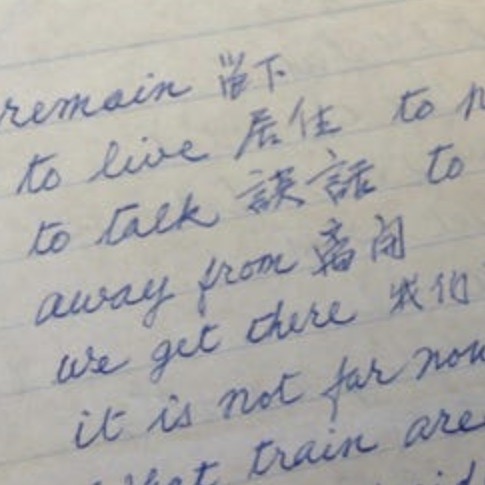 remain 留下
to live 居住 to
to talk 談話 to
away from 离闭
we get there 我们
it is not far now
that train are